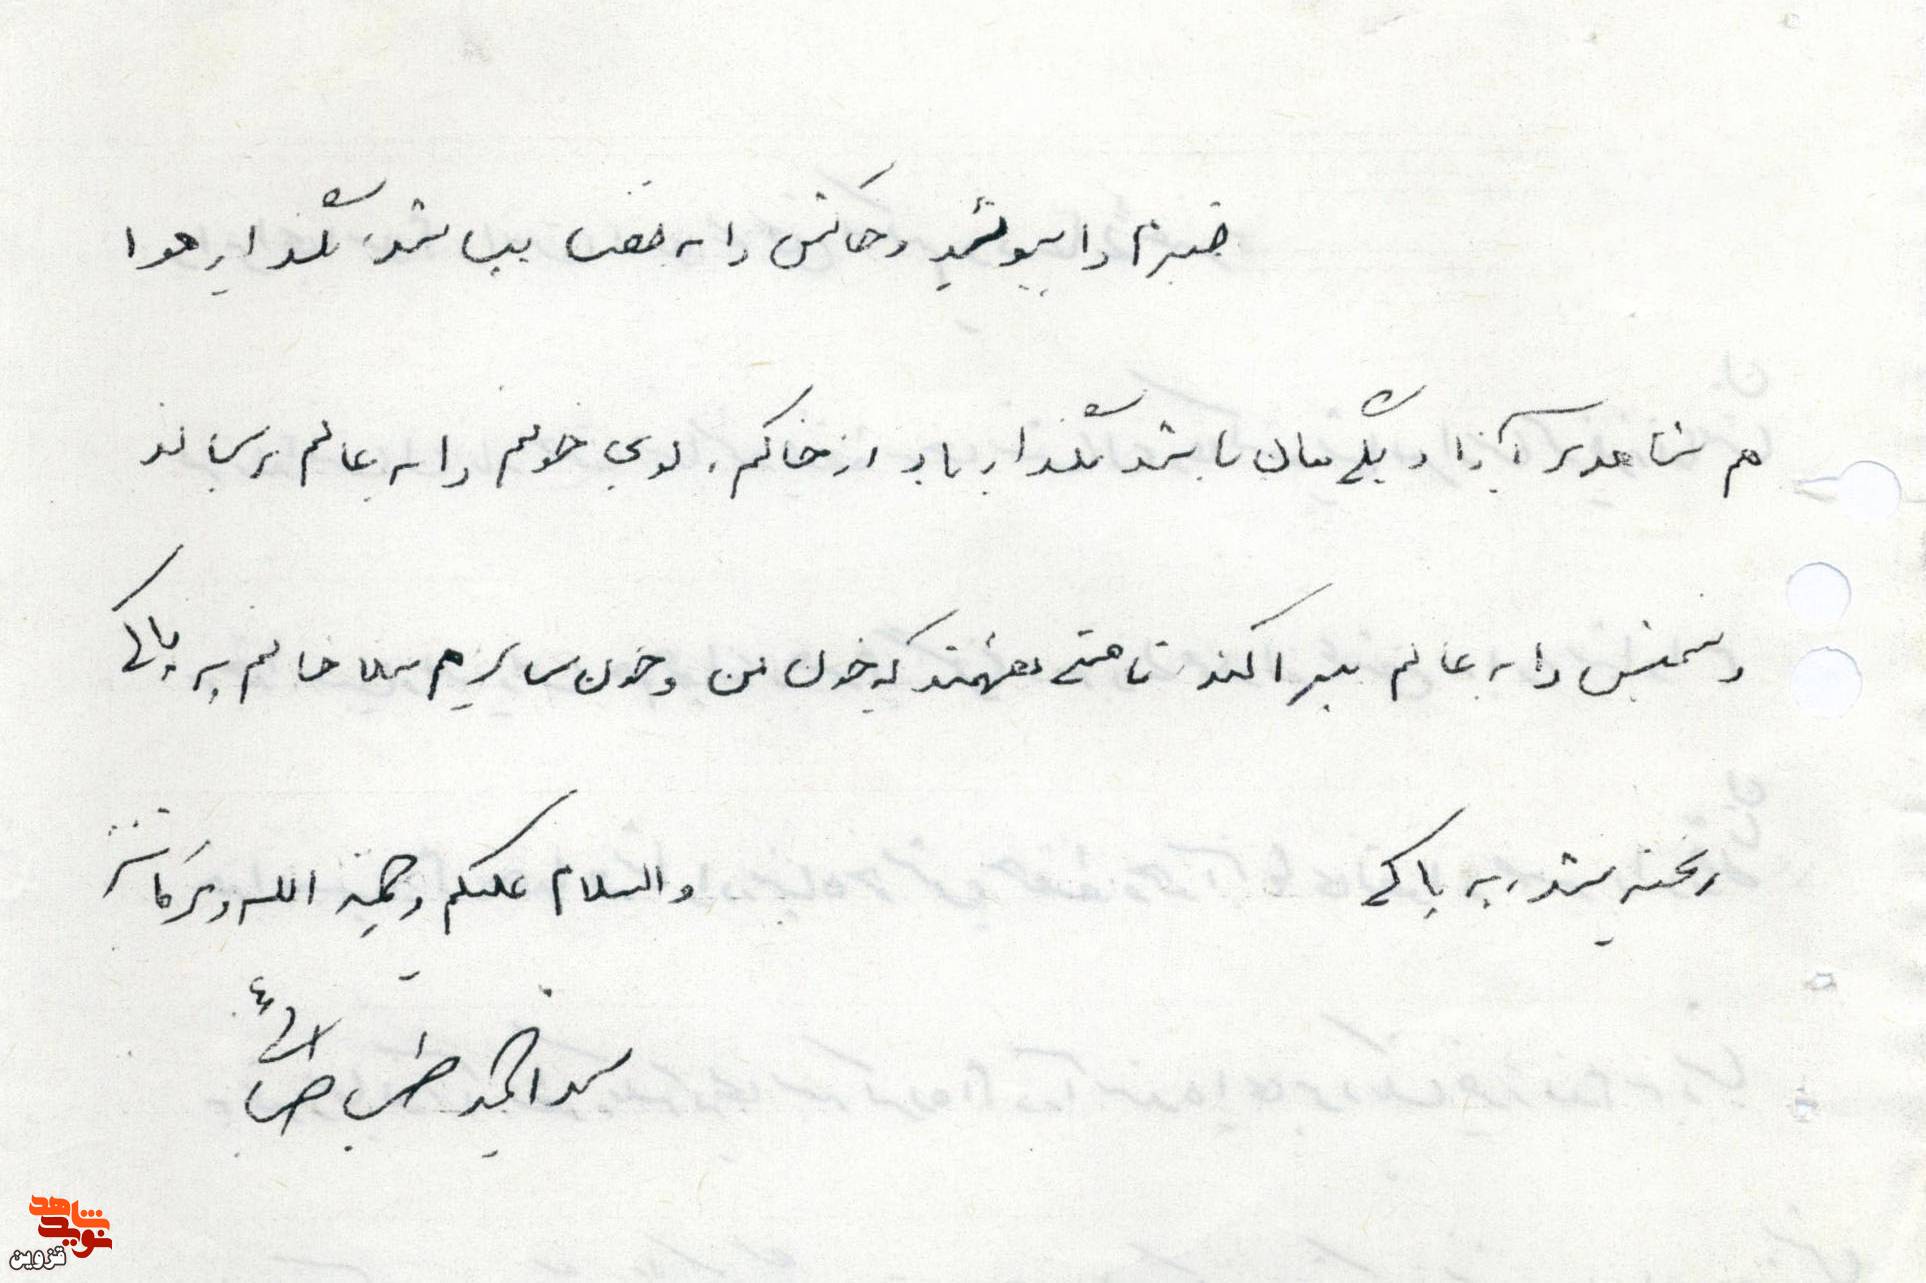 قبرم را بپوشید و خاکش را به فضا بپاشید، بگذارید هوا
هم شاهدی آزاد بیگمان باشد بگذارید باد از خاکم، بوی خونم را به عالم برساند
را به عالم بپراکند تا همه بفهمند که خون من و خون سایر هم سلاحانم به پاکی
ریخته شد، به پاکی
والسلام علیکم ورحمة الله وبرکاته
سید احمد طباطبائی
شاهد
نوید
قزوین